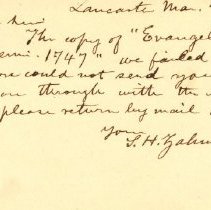 Lancaster Mar.
The copy of "Evangel
1747" we failed
could not send you
through with the
please return by mail
Your
S. H. Zahm